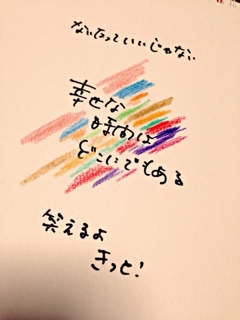 ないたっていいじゃない
幸せな
時間は
どこにでもある
笑えるよ
きっと!